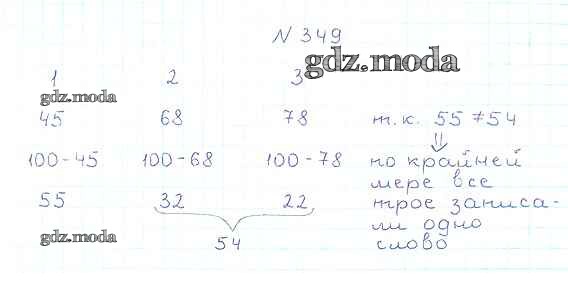 N 349
gdz.moda
1 2 3
gdz.moda
45 68 78 т.к. 55 ≠ 54
⇓
100-45 100-68 100-78 по крайней
мере все
55 32 22 трое записа-
ли одно
gdz.moda 54 слово